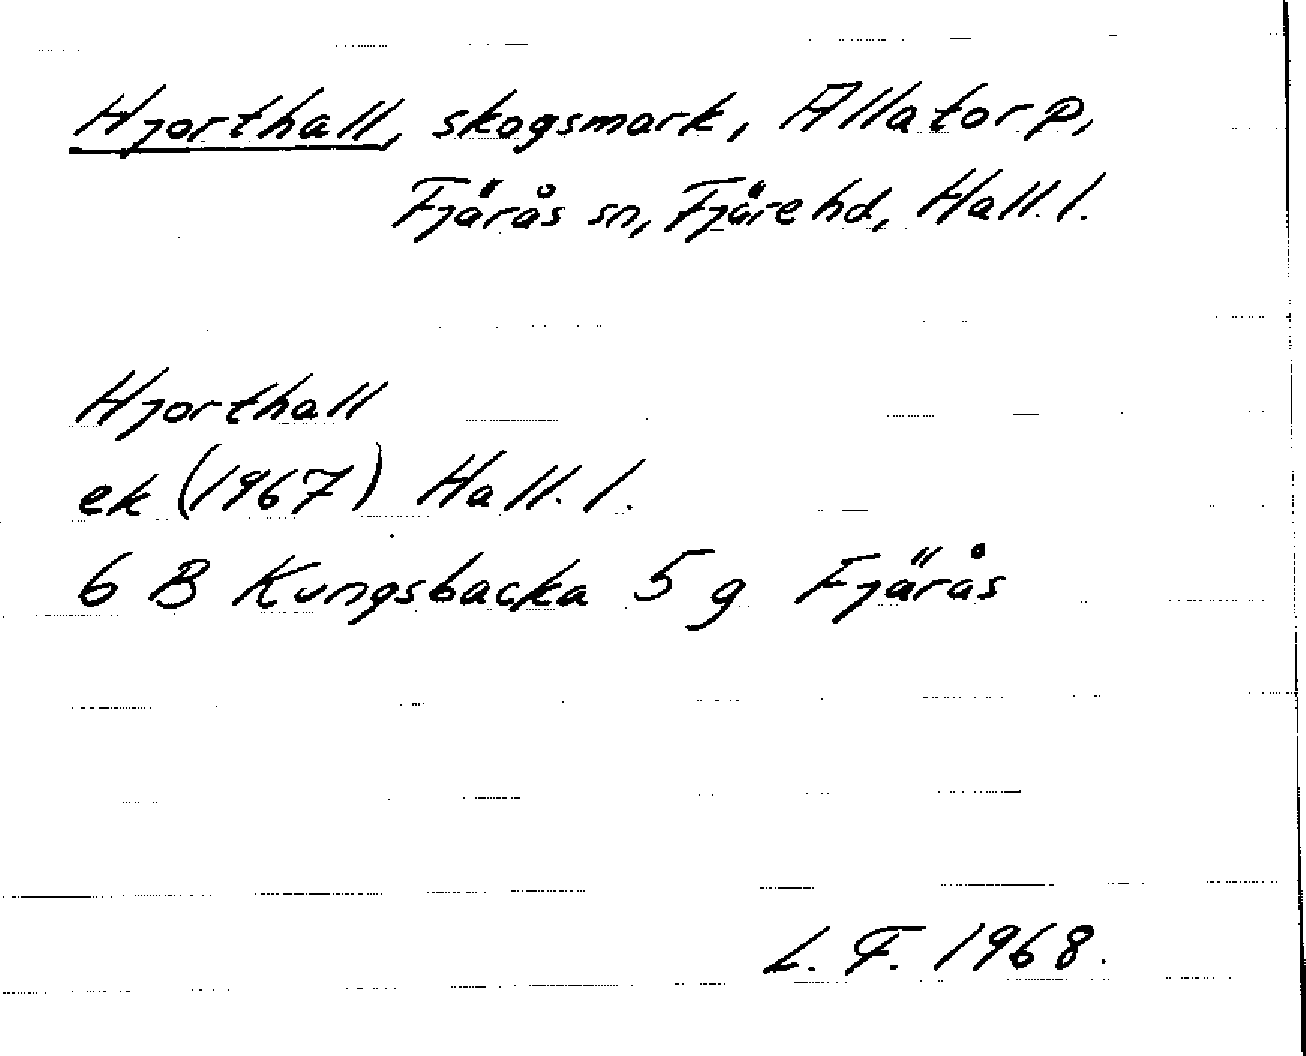 Hjorthall, skogsmark, Allatorp,
Fjärås sn, Fjäre hd, Hall. l.
Hjorthall
ek (1967) Hall. l.
6 B Kungsbacka 5 g Fjärås
L. F. 1968.